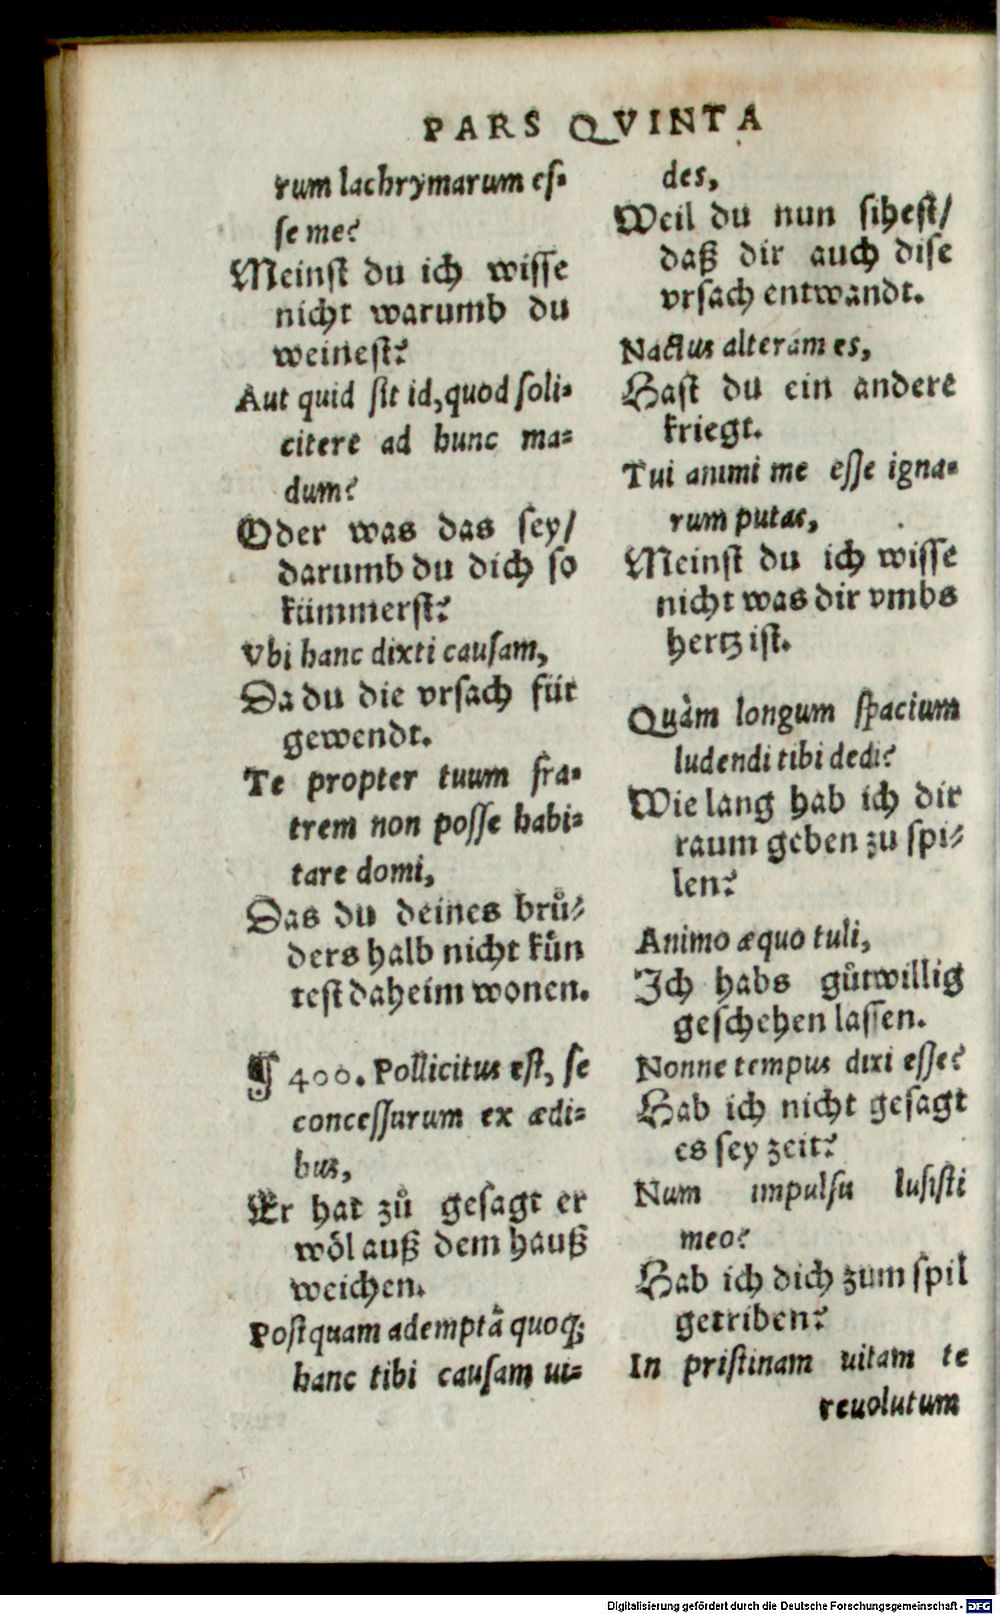 PARS QVINTA
rum lachrymarum eſ⸗
ſe me?
Meinſt du ich wiſſe
nicht warumb du
weineſt?
Aut quid ſit id, quod ſoli⸗
citere ad hunc ma⸗
dum?
Oder was das ſey/
darumb du dich ſo
kümmerſt?
Vbi hanc dixti cauſam,
Da du die vrſach für
gewendt.
Te propter tuum fra⸗
trem non poſſe habi⸗
tare domi,
Das du deines brů⸗
ders halb nicht kün
teſt daheim wonen.
¶ 400. Pollicitus eſt, ſe
conceſſurum ex ædi⸗
bus,
Er hat zů geſagt er
wöl auß dem hauß
weichen.
Poſtquam ademptā quoq;
hanc tibi cauſam ui⸗
des,
Weil du nun ſiheſt/
daß dir auch diſe
vrſach entwandt.
Nactus alteram es,
Haſt du ein andere
kriegt.
Tui animi me eſſe igna⸗
rum putas,
Meinſt du ich wiſſe
nicht was dir vmbs
hertz iſt.
Quàm longum ſpacium
ludendi tibi dedi?
Wie lang hab ich dir
raum geben zu ſpi⸗
len?
Animo æquo tuli,
Ich habs gůtwillig
geſchehen laſſen.
Nonne tempus dixi eſſe?
Hab ich nicht geſagt
es ſey zeit?
Num impulſu luſiſti
meo?
Hab ich dich zum ſpil
getriben?
In priſtinam uitam te
reuolutum
Digitalisierung gefördert durch die Deutsche Forschungsgemeinschaft - DFG